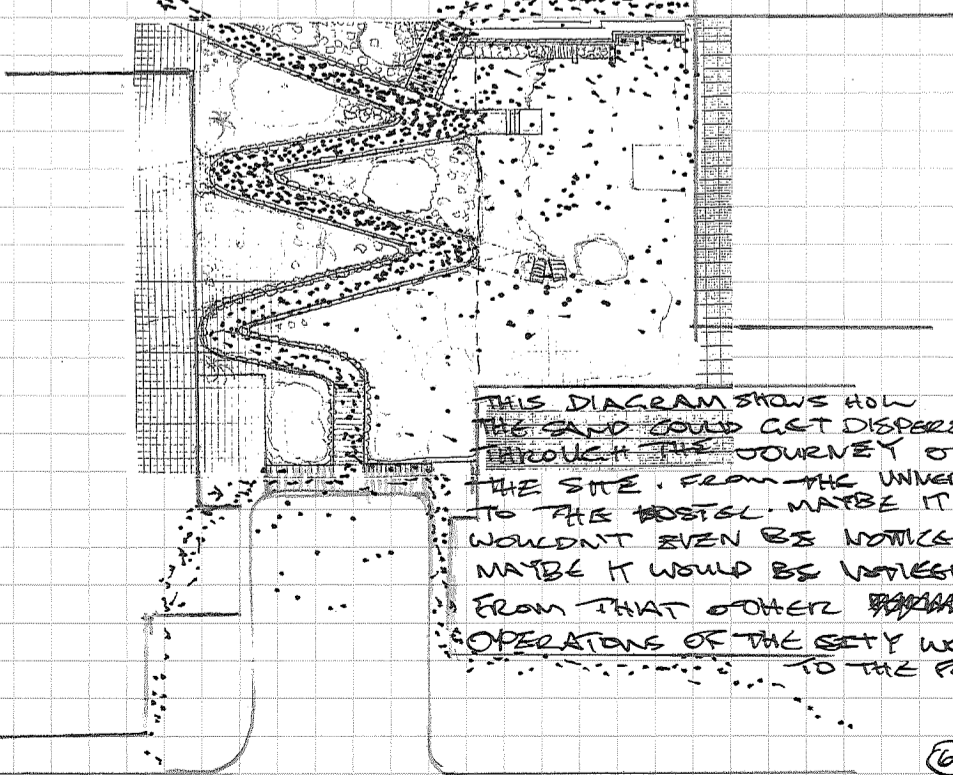 THIS DIAGRAM SHOWS HOW
THE SAND COULD GET DISPERS
THROUGH THE JOURNEY O
THE SITE. FROM THE UNIVE
TO THE HOSTEL. MAYBE IT
WOULDN'T EVEN BE NOTICE
MAYBE IT WOULD BE NOTICE
FROM THAT OTHER
OPERATIONS OF THE CITY WO
TO THE
6